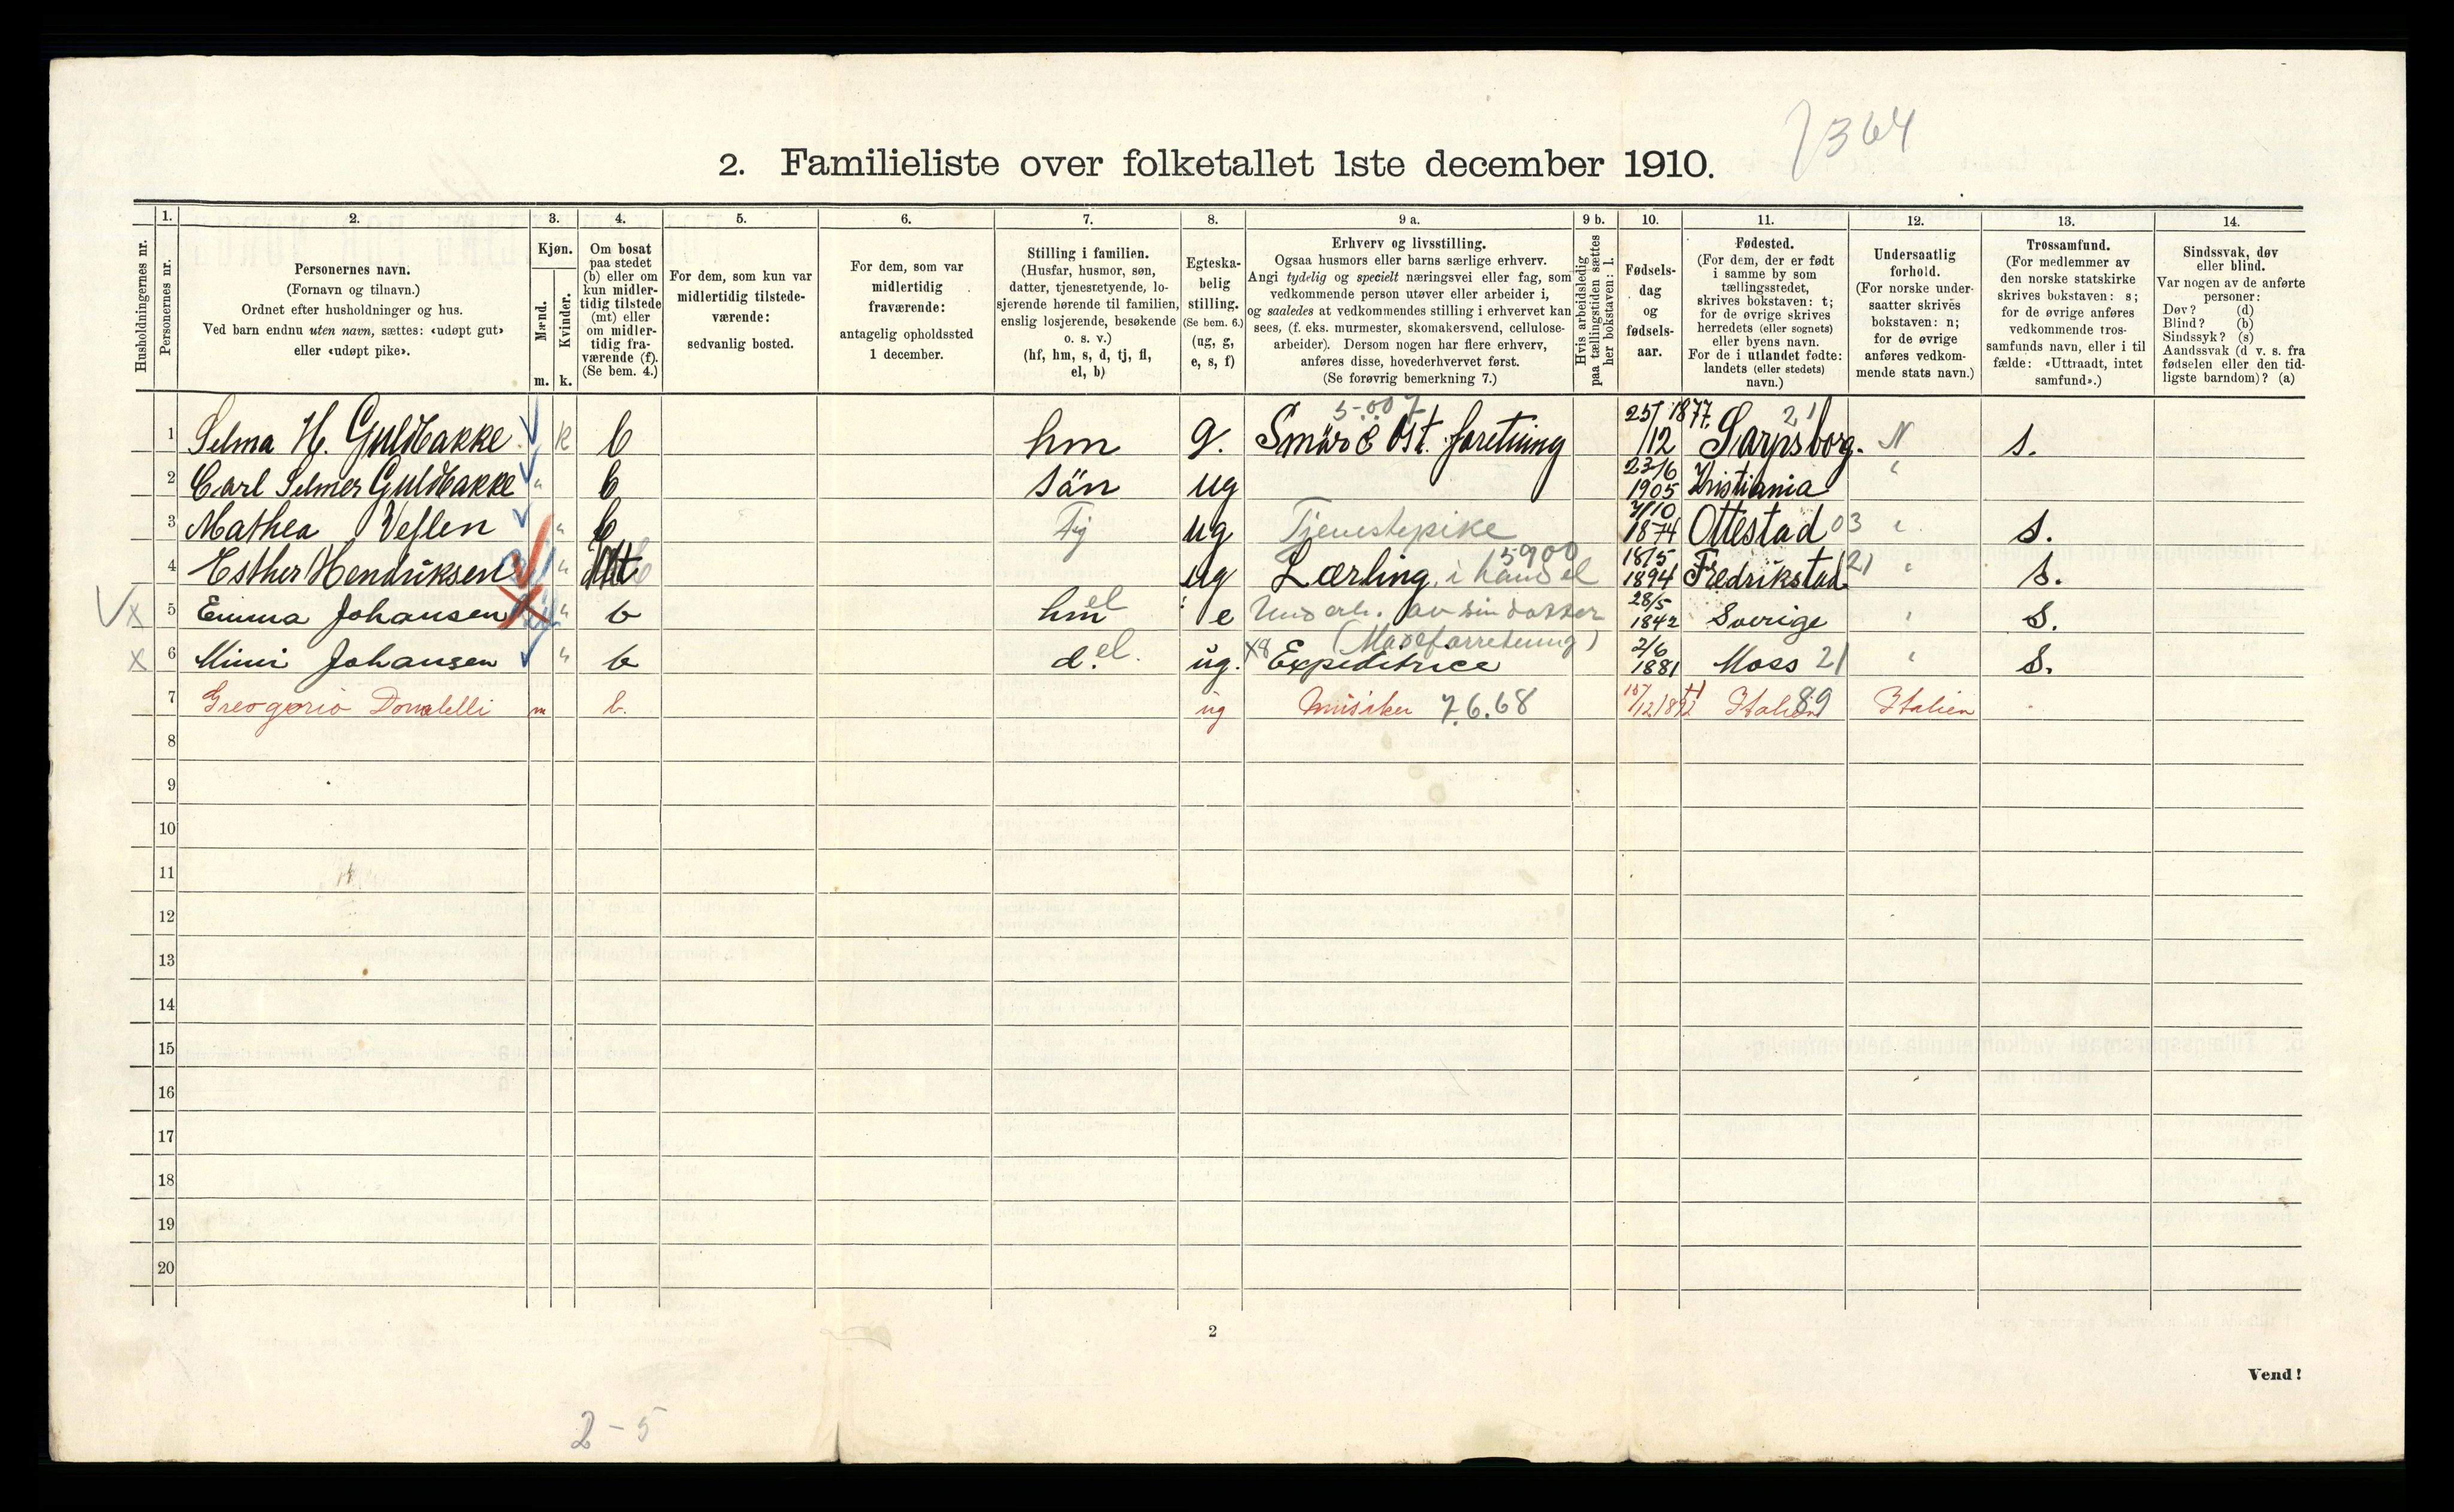 7364
2. Familieliste over folketallet 1ste december 1910.
Husholdningernes nr.
Personernes nr.
1.
2.
Personernes navn.
(Fornavn og tilnavn.)
Ordnet efter husholdninger og hus.
Ved barn endnu uten navn, sættes: «udøpt gut»
eller «udøpt pike».
3.
Kjøn.
Mænd.
Kvinder.
m. k.
4.
Om bosat
paa stedet
(b) eller om
kun midler-
tidig tilstede
(mt) eller
om midler-
tidig fra-
værende (f).
(Se bem. 4.)
5.
For dem, som kun var
midlertidig tilstede-
værende:
sedvanlig bosted.
6.
For dem, som var
midlertidig
fraværende:
antagelig opholdssted
1 december.
7.
Stilling i familien.
(Husfar, husmor, søn,
datter, tjenestetyende, lo-
sjerende hørende til familien,
enslig losjerende, besøkende
o. s. v.)
(hf, hm, s, d, tj, fl,
el, b)
8.
Egteska-
belig
stilling.
(Se bem. 6.)
(ug, g,
e, s, f)
9 a.
Erhverv og livsstilling.
Ogsaa husmors eller barns særlige erhverv.
Angi tydelig og specielt næringsvei eller fag, som
vedkommende person utøver eller arbeider i,
og saaledes at vedkommendes stilling i erhvervet kan
sees, (f. eks. murmester, skomakersvend, cellulose-
arbeider). Dersom nogen har flere erhverv,
anføres disse, hovederhvervet først.
(Se forøvrig bemerkning 7.)
9 b.
Hvis arbeidsledig
paa tællingstiden sættes
her bokstaven: l.
10.
Fødsels-
dag
og
fødsels-
aar.
11.
Fødested.
(For dem, der er født
i samme by som
tællingsstedet,
skrives bokstaven: t;
for de øvrige skrives
herredets (eller sognets)
eller byens navn.
For de i utlandet fødte:
landets (eller stedets)
navn.)
12.
Undersaatlig
forhold.
(For norske under-
saatter skrives
bokstaven: n;
for de øvrige
anføres vedkom-
mende stats navn.)
13.
Trossamfund.
(For medlemmer av
den norske statskirke
skrives bokstaven: s;
for de øvrige anføres
vedkommende tros-
samfunds navn, eller i til
fælde: «Uttraadt, intet
samfund».)
14.
Sindssvak, døv
eller blind.
Var nogen av de anførte
personer:
Døv? (d)
Blind? (b)
Sindssyk? (s)
Aandssvak (d v. s. fra
fødselen eller den tid-
ligste barndom)? (a)
1 Selma H. Guldbakke k b hm g. Smör & Ost. foretning 25/12 1877 Sarpsborg. 21 N s.
2 Carl Selmer Guldbakke " b sän ug 23/6 1905 Kristiania "
3 Mathea Veflen " b Tj ug Tjenestepike 7/10 1874 Ottestad 03 " s.
4 Esther Hendriksen " b ug Lærling i handel 5900 18/5 1894 Fredrikstad 21 " s.
x 5 Emma Johansen " b hm el e Underh. av sin datter 28/5 1842 Sverige " s.
x 6 Mimi Johansen " b d. el. ug. Expeditrice 2/6 1881 Moss 21 " s.
7 Greogorio Donatelli m b. ug musiker 7.6.68 Italien 89 Italien
8
9
10
11
12
13
14
15
16
17
18
19
20
2
Vend!
2-5